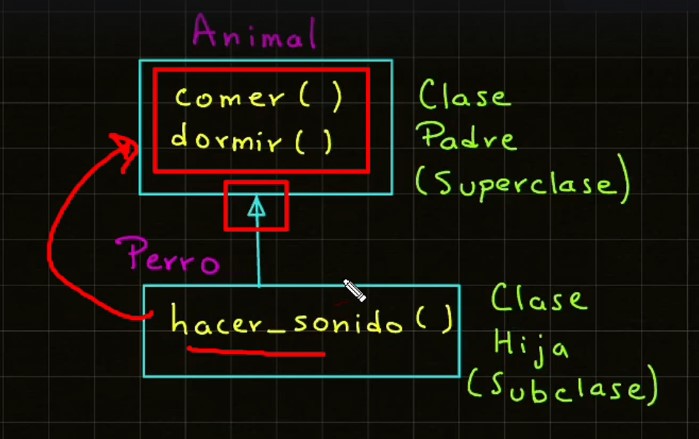 Animal
comer ( )
dormir ( )
Clase
Padre
(Superclase)
Perro
hacer_sonido ( )
Clase
Hija
(Subclase)